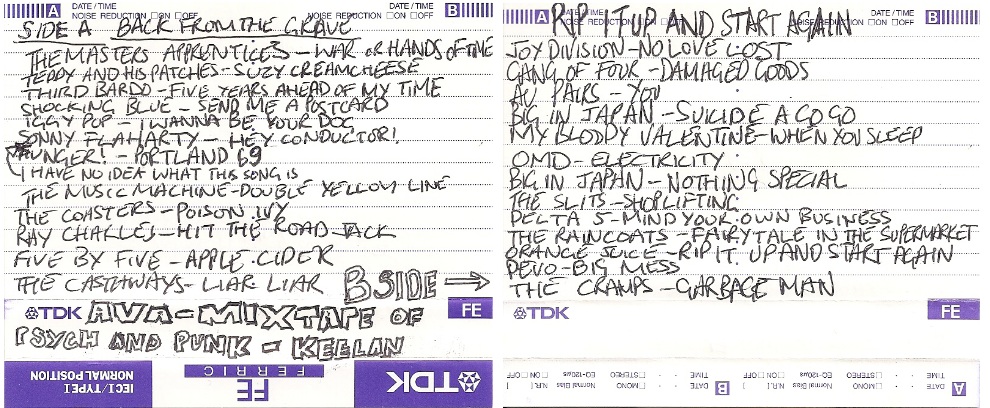 A DATE / TIME
NOISE REDUCTION ☐ON ☐OFF
DATE / TIME B
NOISE REDUCTION ☐ON ☐OFF
SIDE A BACK FROM THE GRAVE
THE MASTERS APPRENTICES - WAR OR HANDS OF TIME
TEDDY AND HIS PATCHES - SUZY CREAMCHEESE
THIRD BARDO - FIVE YEARS AHEAD OF MY TIME
SHOCKING BLUE - SEND ME A POSTCARD
IGGY POP - I WANNA BE YOUR DOG
SONNY FLAHARTY - HEY CONDUCTOR!
HUNGER! - PORTLAND 69
I HAVE NO IDEA WHAT THIS SONG IS
THE MUSIC MACHINE - DOUBLE YELLOW LINE
THE COASTERS - POISON IVY
RAY CHARLES - HIT THE ROAD JACK
FIVE BY FIVE - APPLE CIDER
THE CASTAWAYS - LIAR LIAR
B SIDE →
TDK FE
AVA - MIXTAPE OF
PSYCH AND PUNK - KEELAN
IEC I / TYPE I
NORMAL POSITION
FE
FERRIC
TDK
A DATE / TIME
NOISE REDUCTION ☐ON ☐OFF
DATE / TIME B
NOISE REDUCTION ☐ON ☐OFF
RIP IT UP AND START AGAIN
JOY DIVISION - NO LOVE LOST
GANG OF FOUR - DAMAGED GOODS
AU PAIRS - YOU
BIG IN JAPAN - SUICIDE A GO GO
MY BLOODY VALENTINE - WHEN YOU SLEEP
OMD - ELECTRICITY
BIG IN JAPAN - NOTHING SPECIAL
THE SLITS - SHOPLIFTING
DELTA 5 - MIND YOUR OWN BUSINESS
THE RAINCOATS - FAIRYTALE IN THE SUPERMARKET
ORANGE JUICE - RIP IT UP AND START AGAIN
DEVO - BIG MESS
THE CRAMPS - GARBAGE MAN
TDK FE
A DATE
TIME
☐STEREO ☐MONO
Normal Bias EQ-120µs
[ N.R. ] ☐ON ☐OFF
B DATE
TIME
☐STEREO ☐MONO
Normal Bias EQ-120µs
[ N.R. ] ☐ON ☐OFF